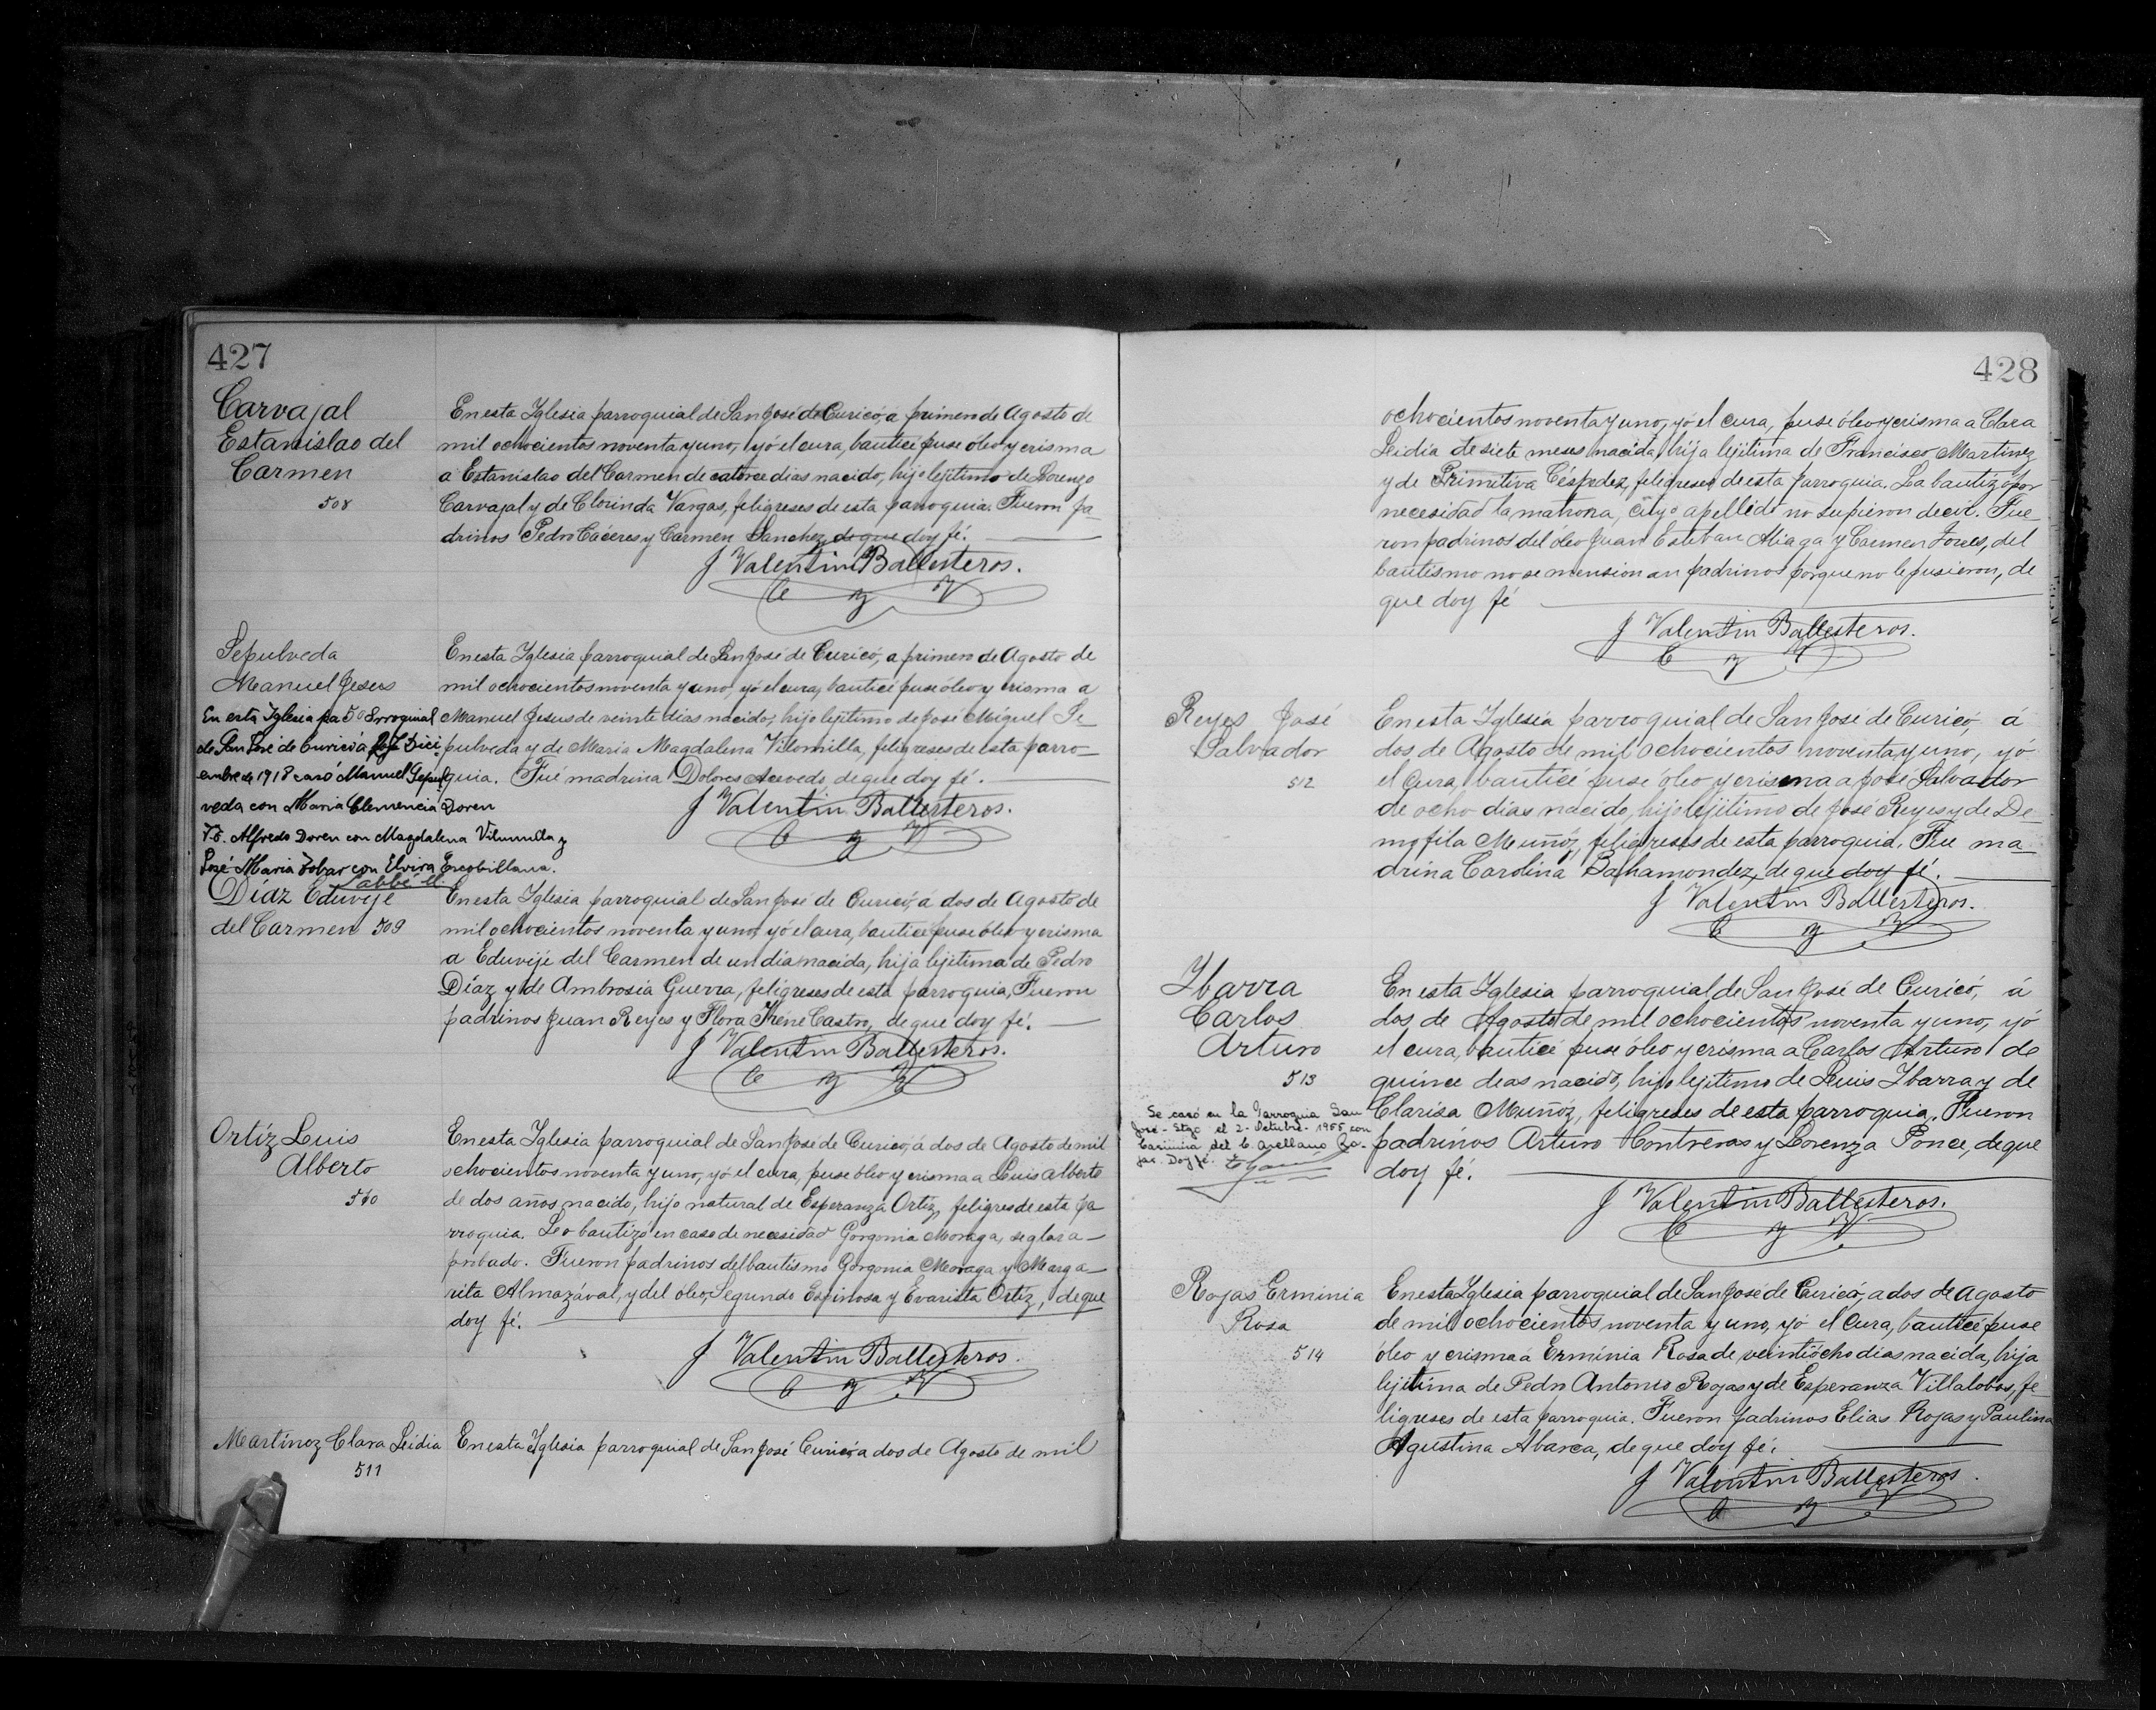 427
Carvajal
Estanislao del
Carmen
508
En esta Iglesia parroquial de San José de Curicó, a primero de Agosto de
mil ochocientos noventa y uno, yó el cura, bauticé puse óleo y crisma
a Estanislao del Carmen de catorce dias nacido, hijo lejítimo de Lorenzo
Carvajal y de Clorinda Vargas, feligreses de esta parroquia. Fueron pa-
drinos Pedro Cáceres y Carmen Sanchez, de que doy fé.
J Valentin Ballesteros.
C y V
Sepulveda
Manuel Jesus
En esta Iglesia parroquial
de San José de Curicó a Dici
embre de 1918 casó Manuel Sepul
veda con Maria Clemencia Doren
T.s. Alfredo Doren con Magdalena Vilumilla y
José Maria Tobar con Elvira Escobillana.
Labbé
En esta Iglesia parroquial de San José de Curicó, a primero de Agosto de
mil ochocientos noventa y uno, yó el cura, bauticé puse óleo y crisma a
Manuel Jesus de veinte dias nacido, hijo lejítimo de José Miguel Se-
pulveda y de Maria Magdalena Vilomilla, feligreses de esta parro-
quia. Fué madrina Dolores Acevedo, de que doy fé.
J Valentin Ballesteros.
C y V
Díaz Eduvije
del Carmen 509
En esta Iglesia parroquial de San José de Curicó, á dos de Agosto de
mil ochocientos noventa y uno, yó el cura, bauticé puse óleo y crisma
a Eduvije del Carmen de un día nacida, hija lejítima de Pedro
Díaz y de Ambrosia Guerra, feligreses de esta parroquia, Fueron
padrinos Juan Reyes y Flora Irene Castro, de que doy fé.
J Valentin Ballesteros.
C y V
Ortíz Luis
Alberto
510
En esta Iglesia parroquial de San José de Curicó, á dos de Agosto de mil
ochocientos noventa y uno, yó el cura, puse óleo y crisma a Luis Alberto
de dos años nacido, hijo natural de Esperanza Ortíz, feligres de esta pa
rroquia. Lo bautizó en caso de necesidad Gorgonia Moraga, seglar a-
probado. Fueron padrinos del bautismo Gorgonia Moraga y Marga-
rita Almazával, y del óleo, Segundo Espinosa y Evarista Ortíz, de que
doy fé.
J Valentin Ballesteros.
C y V
Martínez Clara Leidia
511
En esta Iglesia parroquial de San José Curicó a dos de Agosto de mil
428
ochocientos noventa y uno, yó el cura, puse óleo y crisma a Clara
Leidia de siete meses nacida, hija lejítima de Francisco Martinez
y de Primitiva Céspedez, feligreses de esta parroquia. La bautizó por
necesidad la matrona, cuyo apellido no supieron decir. Fue-
ron padrinos del óleo Juan Esteban Aliaga y Carmen Torres, del
bautismo no se mensionan padrinos porque no le pusieron, de
que doy fé
J Valentin Ballesteros.
C y V
Reyes José
Salvador
512
En esta Iglesia parroquial de San José de Curicó, á
dos de Agosto de mil ochocientos noventa y uno, yó
el cura, bauticé puse óleo y crisma a José Salvador
de ocho dias nacido, hijo lejítimo de José Reyes y de De-
mofila Muñóz, feligreses de esta parroquia. Fue ma-
drina Carolina Bahamondez, de que doy fé.
J Valentin Ballesteros.
C y V
Ybarra
Carlos
Arturo
513
Se casó en la Parroquia San
José - Stgo el 2 - Octubre - 1955 con
Casimira del C. Arellano Ro-
jas. Doy fé.
En esta Iglesia parroquial de San José de Curicó, á
dos de Agosto de mil ochocientos noventa y uno, yó
el cura, bauticé puse óleo y crisma a Carlos Arturo de
quince dias nacido, hijo lejítimo de Luis Ybarra y de
Clarisa Muñóz, feligreses de esta parroquia. Fueron
padrinos Arturo Contreras y Lorenza Ponce, de que
doy fé.
J Valentin Ballesteros.
C y V
Rojas Erminia
Rosa
514
En esta Iglesia parroquial de San José de Curicó, a dos de Agosto
de mil ochocientos noventa y uno, yó el cura, bauticé puse
óleo y crisma a Erminia Rosa de veintiocho dias nacida, hija
lejítima de Pedro Antonio Rojas y de Esperanza Villalobos, fe-
ligreses de esta parroquia. Fueron padrinos Elias Rojas y Paulina
Agustina Abarca, de que doy fé.
J Valentin Ballesteros.
C y V